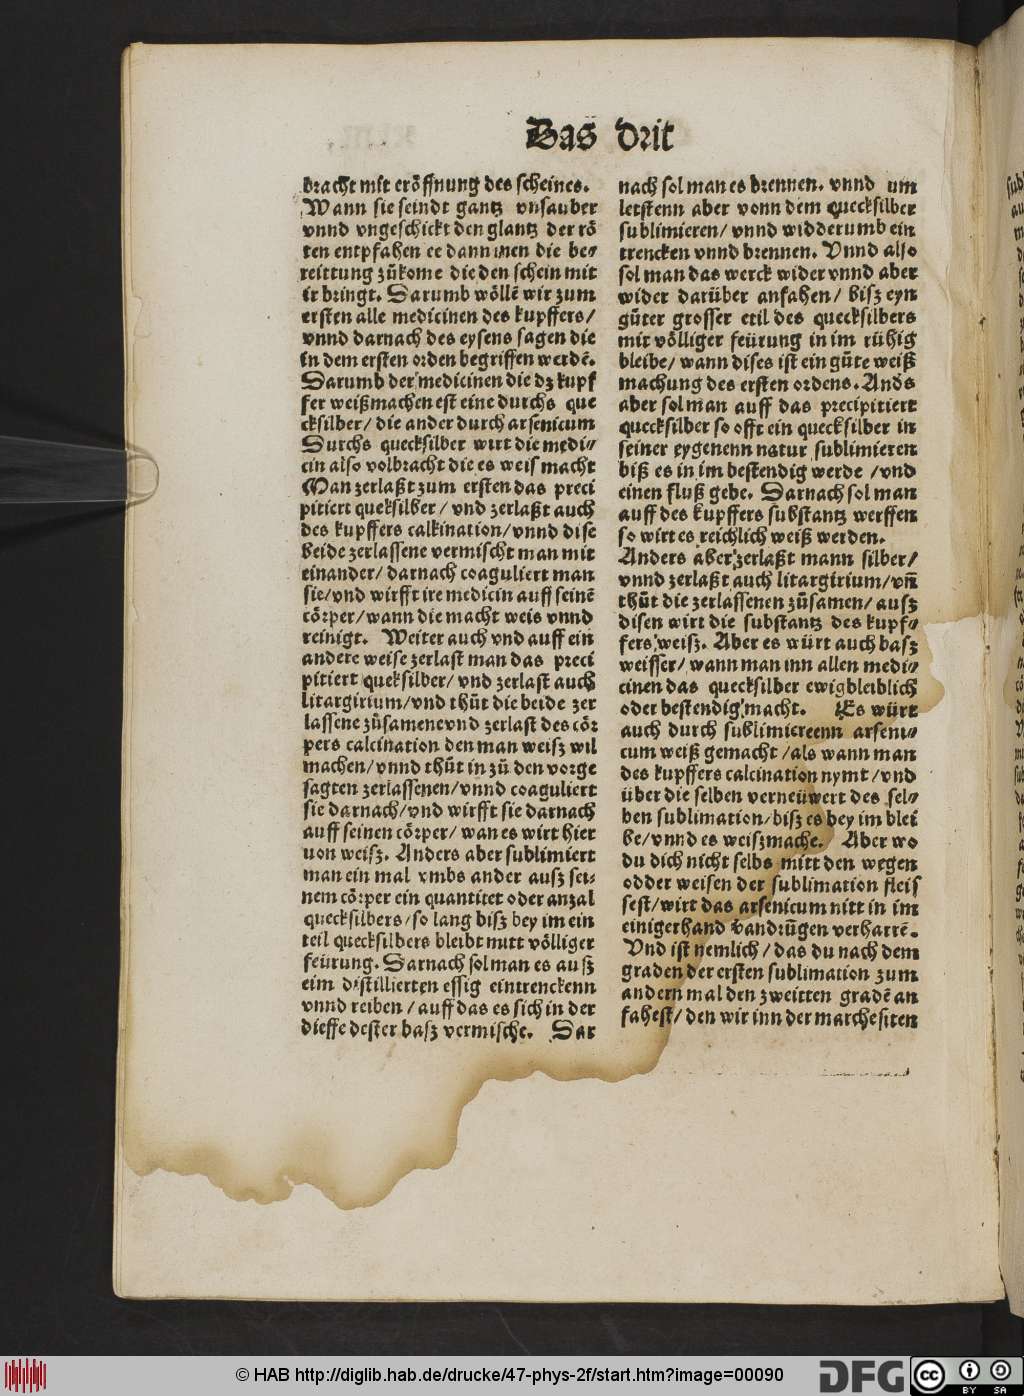 Das drit
bracht mit eröffnung des scheines.
Wann sie seindt gantz vnsauber
vnnd vngeschickt den glantz der rö
ten entpfahen ee dann inen die be⸗
reittung zůkome die den schein mit
ir bringt. Darumb wöllē wir zum
ersten alle medicinen des kupffers/
vnnd darnach des eysens sagen die
in dem ersten orden begriffen werdē.
Darumb der medicinen die dz kupf
fer weißmachen est eine durchs que
cksilber/ die ander durch arsenicum
Durchs quecksilber wirt die medi⸗
cin also volbracht die es weis macht
Man zerlaßt zum ersten das preci
pitiert queksilber/ vnd zerlaßt auch
des kupffers calkination/ vnnd dise
beide zerlassene vermischt man mit
einander/ darnach coaguliert man
sie/ vnd wirfft ire medicin auff seinē
cörper/ wann die macht weis vnnd
reinigt. Weiter auch vnd auff ein
andere weise zerlast man das preci
pitiert queksilber/ vnd zerlast auch
litargirium/ vnd thůt die beide zer
lassene zůsamenevnd zerlast des cör
pers calcination den man weisz wil
machen/ vnnd thůt in zů den vorge
sagten zerlassenen/ vnnd coaguliert
sie darnach/ vnd wirfft sie darnach
auff seinen cörper/ wan es wirt hier
uon weisz. Anders aber sublimiert
man ein mal vmbs ander ausz sei⸗
nem cörper ein quantitet oder anzal
quecksilbers/ so lang bisz bey im ein
teil quecksilbers bleibt mitt völliger
feürung. Darnach sol man es ausz
eim distillierten essig eintrenckenn
vnnd reiben/ auff das es sich in der
dieffe dester basz vermische. Dar
nach sol man es brennen. vnnd um
letstenn aber vonn dem quecksilber
sublimieren/ vnnd widderumb ein
trencken vnnd brennen. Vnnd also
sol man das werck wider vnnd aber
wider darüber anfahen/ bisz eyn
gůter grosser etil des quecksilbers
mit völliger feürung in im růhig
bleibe/ wann dises ist ein gůte weiß
machung des ersten ordens. Ands
aber sol man auff das precipitiert
quecksilber so offt ein quecksilber in
seiner eygenenn natur sublimieren
biß es in im bestendig werde /vnd
einen fluß gebe. Darnach sol man
auff des kupffers substantz werffen
so wirt es reichlich weiß werden.
Anders aber zerlaßt mann silber/
vnnd zerlaßt auch litargirium/ vn̄
thůt die zerlassenen zůsamen/ ausz
disen wirt die substantz des kupf⸗
fers weisz. Aber es würt auch basz
weisser/ wann man inn allen medi⸗
cinen das quecksilber ewigbleiblich
oder bestendig macht. Es würt
auch durch sublimiereenn arseni⸗
cum weiß gemacht /als wann man
des kupffers calcination nymt /vnd
über die selben verneüwert des sel⸗
ben sublimation/ bisz es bey im blei
be/ vnnd es weiszmache. Aber wo
du dich nicht selbs mitt den wegen
odder weisen der sublimation fleis
sest/ wirt das arsenicum nitt in im
einigerhand vandrůgen verharrē.
Vnd ist nemlich/ das du nach dem
graden der ersten sublimation zum
andern mal den zweitten gradē an
fahest/ den wir inn der marchesiten
© HAB http://diglib.hab.de/drucke/47-phys-2f/start.htm?image=00090
DFG
cc
BY SA